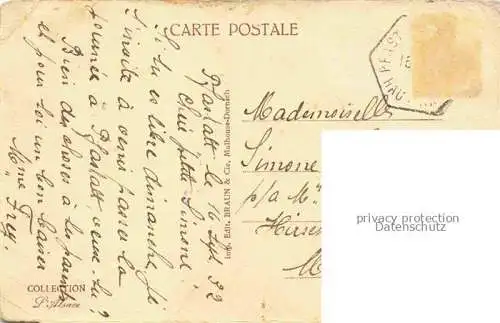 CARTE POSTALE
Pfastatt le 16 Sept. 32
Chère petite Simone.
Si tu es libre dimanche je
t'invite à venir passer la
journée à Pfastatt veux-tu?
Bien des choses à tes parents
et pour toi un bon baiser
Mme Frey.
COLLECTION
D'Alsace
Imp. Edit. BRAUN & Cie, Mulhouse-Dornach
PFAS
Mademoiselle
Simone
p/a Mr
privacy protection
Datenschutz